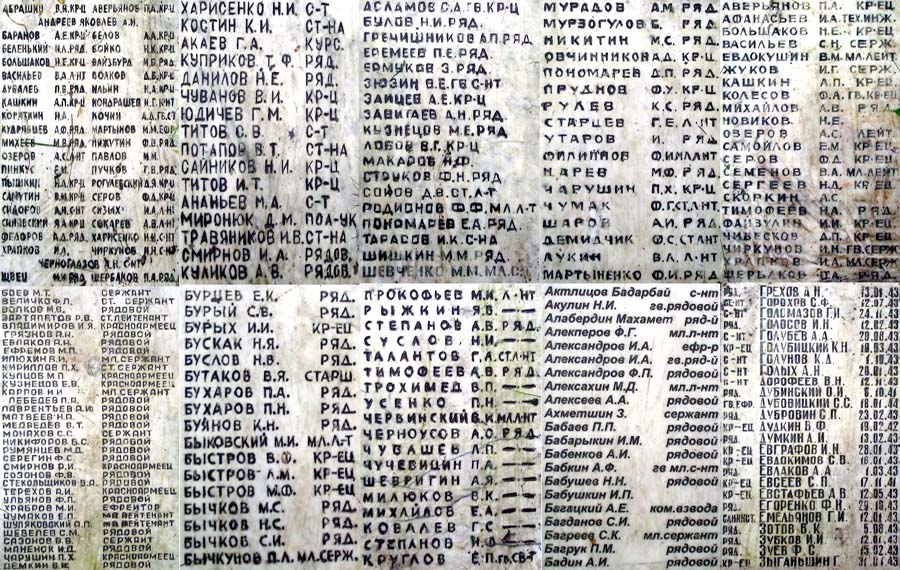 АБРАШКИ В.Я.КР-Ц АВЕРЬЯНОВ П.А.КР-Ц
АНДРЕЕВ ЯКОВЛЕВ А.Н.
БАРАНОВ А.Е.КР-Ц БЕЛОВ А.А.КР-Ц
БЕЛЕНЬКИЙ РЯД. БОЙКО Н.Х.КР-Ц
БОЛЬШАКОВ Н.Е.КР-Ц ВАЙЗБУРД РЯД.
ВАСИЛЬЕВ В.А.Л-НТ ВОЛКОВ КР-Ц
РЯД. ИЛЬИН Н.А.КР-Ц
КАШКИН А.П.КР-Ц КОНДРАШЕВ
КОРЯТКИН РЯД. КОЧИН
КУДРЯВЦЕВ РЯД. МАРТЫНОВ
МИХЕЕВ РЯД. НИЖУТИН РЯД.
ОЗЕРОВ А.С.Л-НТ ПАВЛОВ
ПИНКУС ПУЧКОВ РЯД.
ПЫШКИН КР-Ц РОГУЛЕВСКИЙ КР-Ц
САМУТИН КР-Ц СЕРОВ Ф.Д.КР-Ц
СИДОРОВ СИЗЫХ
СИНЯВСКИЙ РЯД. СОКАРЕВ
ФЕДОРОВ А.Д.РЯД. ХАРИСЕНКО Н.И.
ХРАПКОВ ЧИРКУНОВ
ЧЕРНОГЛАЗОВ А.Н.
ШВЕЦ РЯД. ЩЕРБАКОВ П.А.РЯД.
ХАРИСЕНКО Н.И. С-Т
КОСТИН К.И. СТ-НА
АКАЕВ Г.А. КУРС.
КУПРИКОВ Т.Ф. РЯД.
ДАНИЛОВ Н.Е. РЯД.
ЧУВАНОВ В.И. КР-Ц
ЮДИЧЕВ Г.М. КР-Ц
ТИТОВ С.В. С-Т
ПОТАПОВ В.Т. СТ-НА
САЙНИКОВ Н.И. КР-Ц
ТИТОВ И.Т. КР-Ц
АНАНЬЕВ М.Д. С-Т
МИРОНЮК Д.М. ПОЛ-УК
ТРАВЯНИКОВ И.В. СТ-НА
СМИРНОВ И.А. РЯДОВ.
КУЛИКОВ А.В. РЯДОВ.
АСЛАМОВ С.Д.ГВ.КР-Ц
БУЛОВ Н.И.РЯД.
ГРЕЧИШНИКОВ А.П.РЯД.
ЕРЕМЕЕВ П.Е.РЯД.
ЕРМУКОВ З.РЯД.
ЗЮЗИН В.Е.ГВ С-НТ
ЗАЙЦЕВ А.Е.КР-Ц
ЗАВИГАЕВ А.Н.РЯД.
КУЗНЕЦОВ М.Е.РЯД
ЛОБОВ В.Г.КР-Ц
МАКАРОВ И.Ф.
СТРУКОВ Ф.Н.РЯД.
СОЙОВ Д.В.СТ.Л-Т
РОДИОНОВ Ф.Ф.МЛ.Л-Т
ПОНОМАРЕВ Е.А.РЯД.
ТАРАСОВ И.К.С-НА
ШИШКИН М.М.РЯД.
ШЕВЧЕНКО М.М.МЛ.С.
МУРАДОВ А.М. РЯД.
МУРЗОГУЛОВ Б. РЯД.
НИКИТИН М.С. РЯД.
ОВЧИННИКОВ А.Д. КР-Ц
ПОНОМАРЕВ Д.П. РЯД.
ПРУДНОВ Ф.У. КР-Ц
РУЛЕВ К.С. РЯД.
СТАРЦЕВ Г.Е. Л-НТ
УТАРОВ И. РЯД.
ФИЛИППОВ Ф.И.МЛ.ЛНТ
ЦАРЕВ М.Ф. РЯД.
ЧАРУШИН П.Х. КР-Ц
ЧУМАК Ф.Г.СТ.ЛНТ
ШАРОВ А.И. РЯД.
ДЕМИДЧИК Ф.С.СТ.НТ
ЛУКИН В.А. МЛ-Т
МАРТЫНЕНКО Ф.И. РЯД.
АВЕРЬЯНОВ П.Л. КР-ЕЦ
АФАНАСЬЕВ И.А.ТЕХ.ИНЖ.
БОЛЬШАКОВ Н.Е. КР-ЕЦ
ВАСИЛЬЕВ С.Н. СЕРЖ.
ЕВДОКУШИН В.М.МЛ.ЛЕЙТ
ЖУКОВ И.Г. СЕРЖ.
КАШКИН А.П. КР-ЕЦ
КОЛЕСОВ Ф.А.ГВ.КР-ЕЦ
МИХАЙЛОВ А.В. РЯД.
НОВИКОВ Н.Е.
ОЗЕРОВ А.С. ЛЕЙТ
САМОЙЛОВ Е.М. КР-ЕЦ
СЕРОВ Ф.Д. КР-ЕЦ
СЕМЕНОВ В.А. МЛ.ЛЕЙТ
СЕРГЕЕВ Н.Д. КР-ЕЦ
СКОРКИН А.С.
ТИМОФЕЕВ Н.А. РЯД.
ФАЙЗУЛИН РЯД.
ЧИВЕСОВ А.П. КР-ЕЦ
ЧИРКУНОВ И.Н.ГВ.СЕРЖ
ХРАПКОВ И.М.МЛ.СЕРЖ
ЩЕРБАКОВ П.А. РЯД.
БОЕВ М.Т. СЕРЖАНТ
ВЕЛИЧКО Ф.Л. СТ. СЕРЖАНТ
ВОЛКОВ И.В. РЯДОВОЙ
ВАРТАПЕТОВ Р.В. СТ.ЛЕЙТЕНАНТ
ВЛАДИМИРОВ И.Я. КРАСНОАРМЕЕЦ
ГРЯЗНОВ А.Н. РЯДОВОЙ
ЕВЛАКОВ А.Н. РЯДОВОЙ
ЕФРЕМОВ М.П. РЯДОВОЙ
ИЛЮХИН В.И. МЛ.СЕРЖАНТ
КИРИЛЛОВ П.Х. СТ.СЕРЖАНТ
КУПЦОВ М.П. КРАСНОАРМЕЕЦ
КУЗНЕЦОВ Е.В. КРАСНОАРМЕЕЦ
КАРПОВ И.И. МЛ.СЕРЖАНТ
ЛЕБЕДЕВ П.А. РЯДОВОЙ
ЛАВРЕНТЬЕВ А.И. РЯДОВОЙ
МАТВЕЕВ Н.А. РЯДОВОЙ
МЕДВЕДЕВ В.Т. РЯДОВОЙ
МОНАХОВ С.С. СЕРЖАНТ
НИКИФОРОВ Б.С. РЯДОВОЙ
РУМЯНЦЕВ М.Д. РЯДОВОЙ
СЕРЕГИН Ф.С. РЯДОВОЙ
СМИРНОВ Р.И. КРАСНОАРМЕЕЦ
СОЗОНОВ Ф.В. РЯДОВОЙ
СТЕКОЛЬЩИКОВ В.А. РЯДОВОЙ
ТЕРЕХОВ А.И. КРАСНОАРМЕЕЦ
УЛЬЯНОВ Ф.П. РЯДОВОЙ
ХРАБРОВ М.И. ЕФРЕЙТОР
ЧУМАКОВ Е.П. МЛ.ЛЕЙТЕНАНТ
ШУЛЯКОВСКИЙ А.П. МЛ.ЛЕЙТЕНАНТ
ШУВЕЛЕВ С.М. РЯДОВОЙ
САЗОНОВ В.В. СЕРЖАНТ
МАНЕНОК И.Д. РЯДОВОЙ
ЧАРУШИН П.Х. КРАСНОАРМЕЕЦ
ДЕМКИН В.К. РЯДОВОЙ
БУРЦЕВ Е.К. РЯД.
БУРЫЙ С.В. РЯД.
БУРЫХ И.И. КР-ЕЦ
БУСКАН Н.Я. РЯД.
БУСЛОВ Н.В. РЯД.
БУТАКОВ В.Я. СТАРШ.
БУХАРОВ П.А. РЯД.
БУХАРОВ П.Н. РЯД.
БУЯНОВ К.Н. РЯД.
БЫКОВСКИЙ М.И. МЛ.Л-Т
БЫСТРОВ В.Ф. КР-ЕЦ
БЫСТРОВ Л.М. КР-ЕЦ
БЫСТРОВ М.Ф. КР-ЕЦ
БЫЧКОВ М.С. РЯД.
БЫЧКОВ Н.С. РЯД.
БЫЧКОВ С.И. РЯД.
БЫЧКУНОВ Д.Л. МЛ.СЕРЖ.
ПРОКОФЬЕВ М.И. Л-НТ
РЫЖКИН Я.В. —
СТЕПАНОВ А.В. РЯД.
СУСЛОВ Н.И. —
ТАЛАНТОВ Г.А.СТ.Л-НТ
ТИМОФЕЕВ А.В. РЯД.
ТРОХИМЕЦ В.П. —
УСЕНКО П.Н. —
ЧЕРВИНСКИЙ В.К.МЛ.ЛНТ
ЧЕРНОУСОВ А.С. РЯД.
ЧУВАШЕВ А.П. —
ЧУЧЕВИЦИН П.А. —
ШЕВРИГИН А.Я. —
МИЛЮКОВ В.К. —
МИХАЙЛОВ Е.А. —
КОВАЛЕВ Г.С. —
СТЕПАНОВ И.Ф. —
КРУГЛОВ Е.П.ГВ.СВ-Т
Актлицов Бадарбай с-нт
Акулин Н.И. гв.рядовой
Алабердин Махамет ряд-й
Алекперов Ф.Г. мл.л-нт
Александров И.А. ефр-р
Александров И.А. гв.ряд-й
Александров Ф.П. рядовой
Алексахин М.Д. мл.л-нт
Алексеев А.А. рядовой
Ахметшин З. сержант
Бабаев П.П. рядовой
Бабарыкин И.М. рядовой
Бабенков А.И. рядовой
Бабкин А.Ф. гв мл.с-нт
Бабушев Н.Н. рядовой
Бабушкин И.П.
Багацкий А.Е. ком.взвода
Багданов С.И. рядовой
Багреев С.К. мл.сержант
Багрук П.М. рядовой
Бадин А.И. рядовой
РЯД. ГРЕХОВ А.Н. 13.01.43
С-НТ ГОРОХОВ С.Ф. 12.07.43
С-НТ ГОЛОМАЗОВ Г.И. 24.11.43
РЯД. ГОЛОСЕЕВ И.Н. 12.02.43
С-НТ ГОЛУБЕВ А.А. 20.03.43
РЯД. ГОЛУБИЦКИЙ К.Н. 18.03.43
С-НТ ГОЛУНОВ К.Д. 1.18.43
РЯД. ГОЛЫХ А.Н. 28.01.43
С-НТ ДОРОФЕЕВ В.Н. 12.12.43
РЯД. ДУБИНСКИЙ О.И. 6.10.41
ГВ.ЕФР. ДУБОВИЦКИЙ С.С. 18.01.44
РЯД. ДУБРОВИН С.П. 23.02.43
КР-ЕЦ ДУДКИН В.Ф. 19.02.43
РЯД. ДУМКИН А.И. 13.02.43
КР-ЕЦ ЕВГРАФОВ И.Н. 28.01.43
КР-ЕЦ ЕВДОКИМОВ С.В. 16.01.43
РЯД. ЕВЛАКОВ А.А. 1.03.43
КР-ЕЦ ЕВСЕЕВ С.П. 17.11.41
КР-ЕЦ ЕВСТАФЬЕВ А.В. 12.05.43
РЯД. ЕГОРЕНКО Ф.Н. 29.10.43
ЕМЕЛЬЯНОВ Г.И. 12.01.43
РЯД. ЗОТОВ В.К. 5.08.43
РЯД. ЗУБКОВ И.И. 12.01.43
РЯД. ЗУЕВ Ф.С. 15.02.43
КР-ЕЦ ЗЫГАНЬШИН Г. 31.01.43